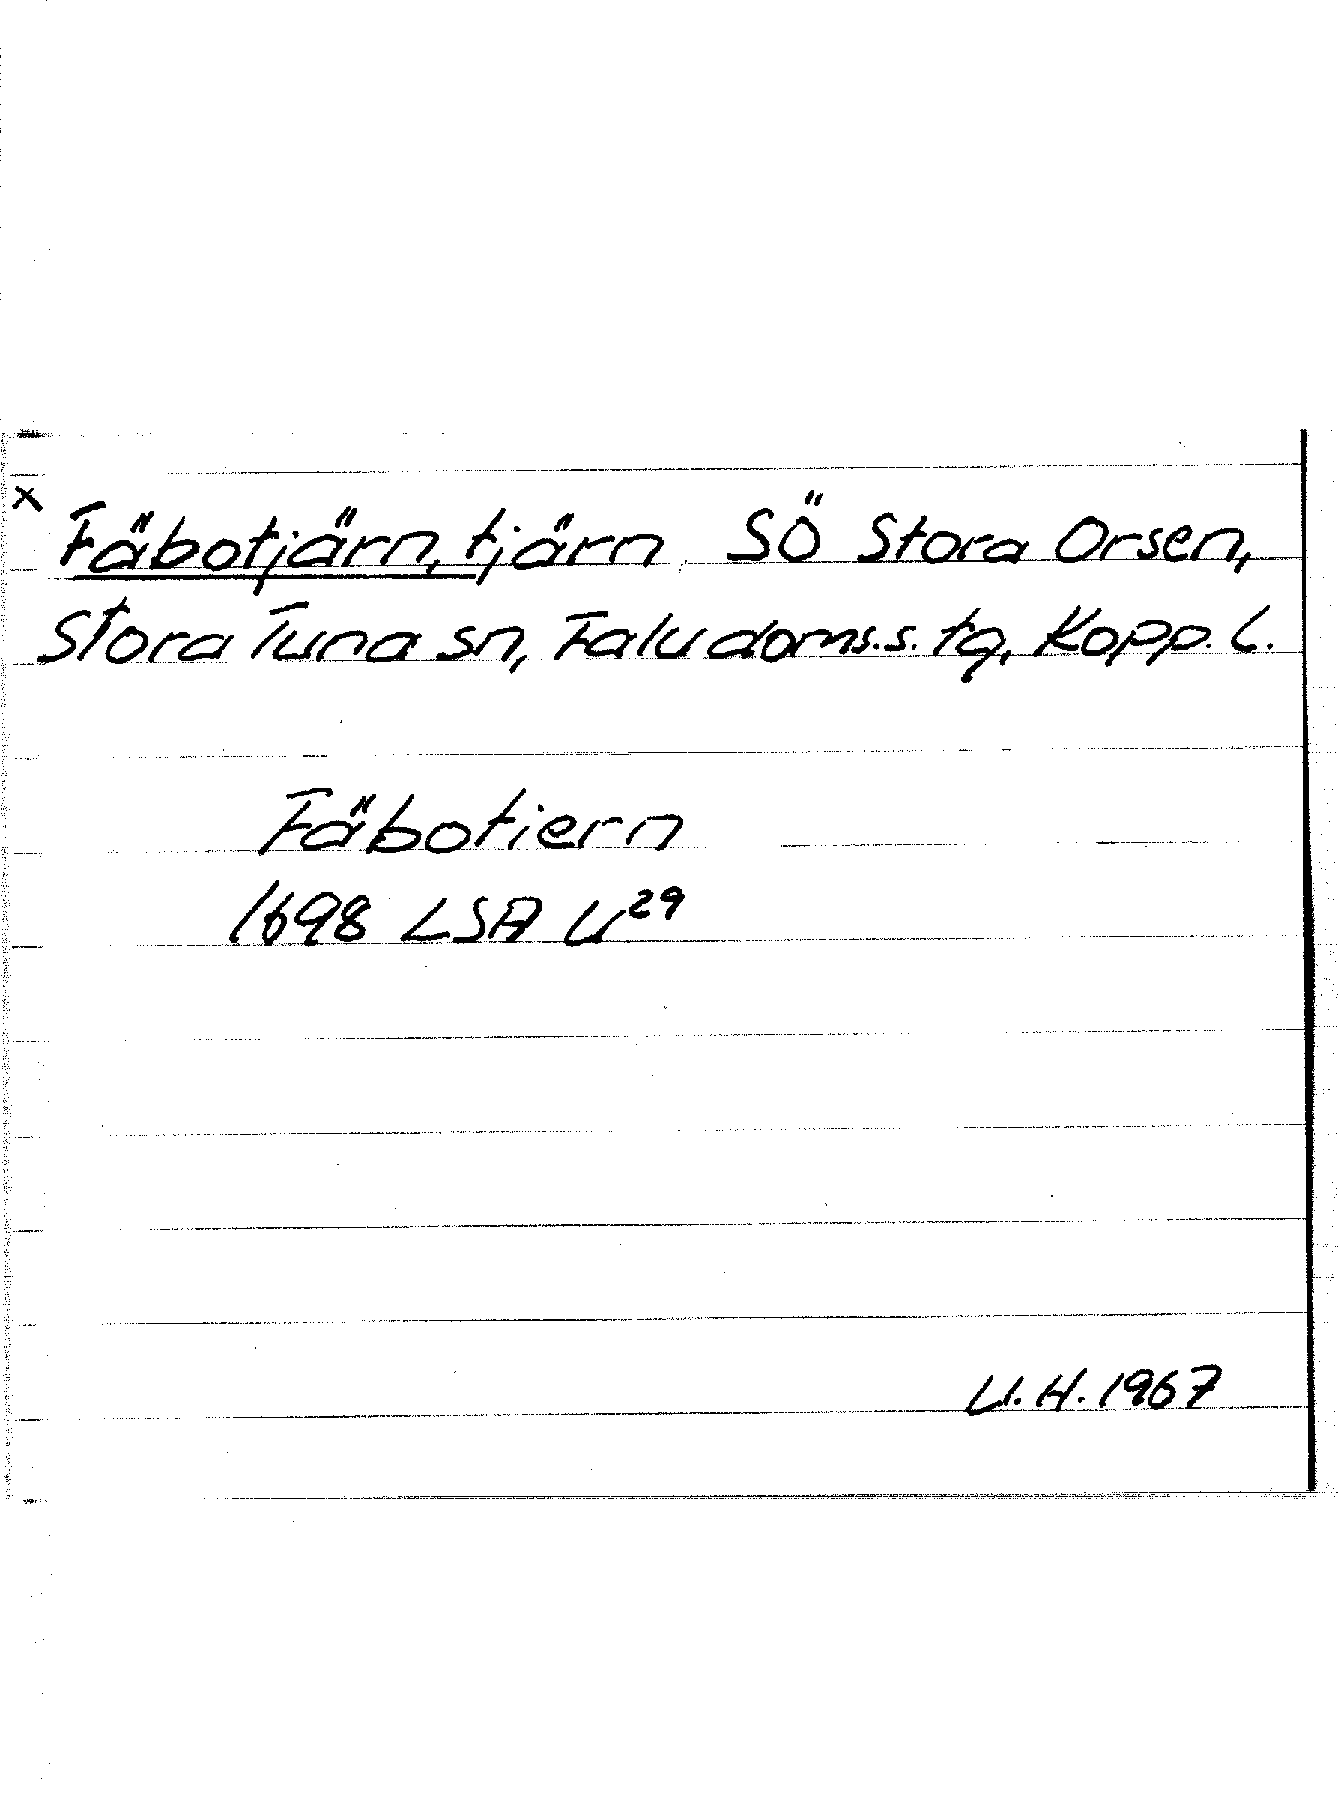 x Fäbotjärn, tjärn SÖ Stora Orsen,
Stora Tuna sn, Falu doms.s. tg, Kopp. l.
Fäbotiern
1698 LSA U²⁹
U.H. 1967